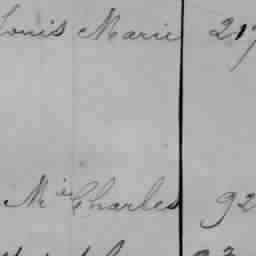 Louis Marie 217
Mie Charles 92